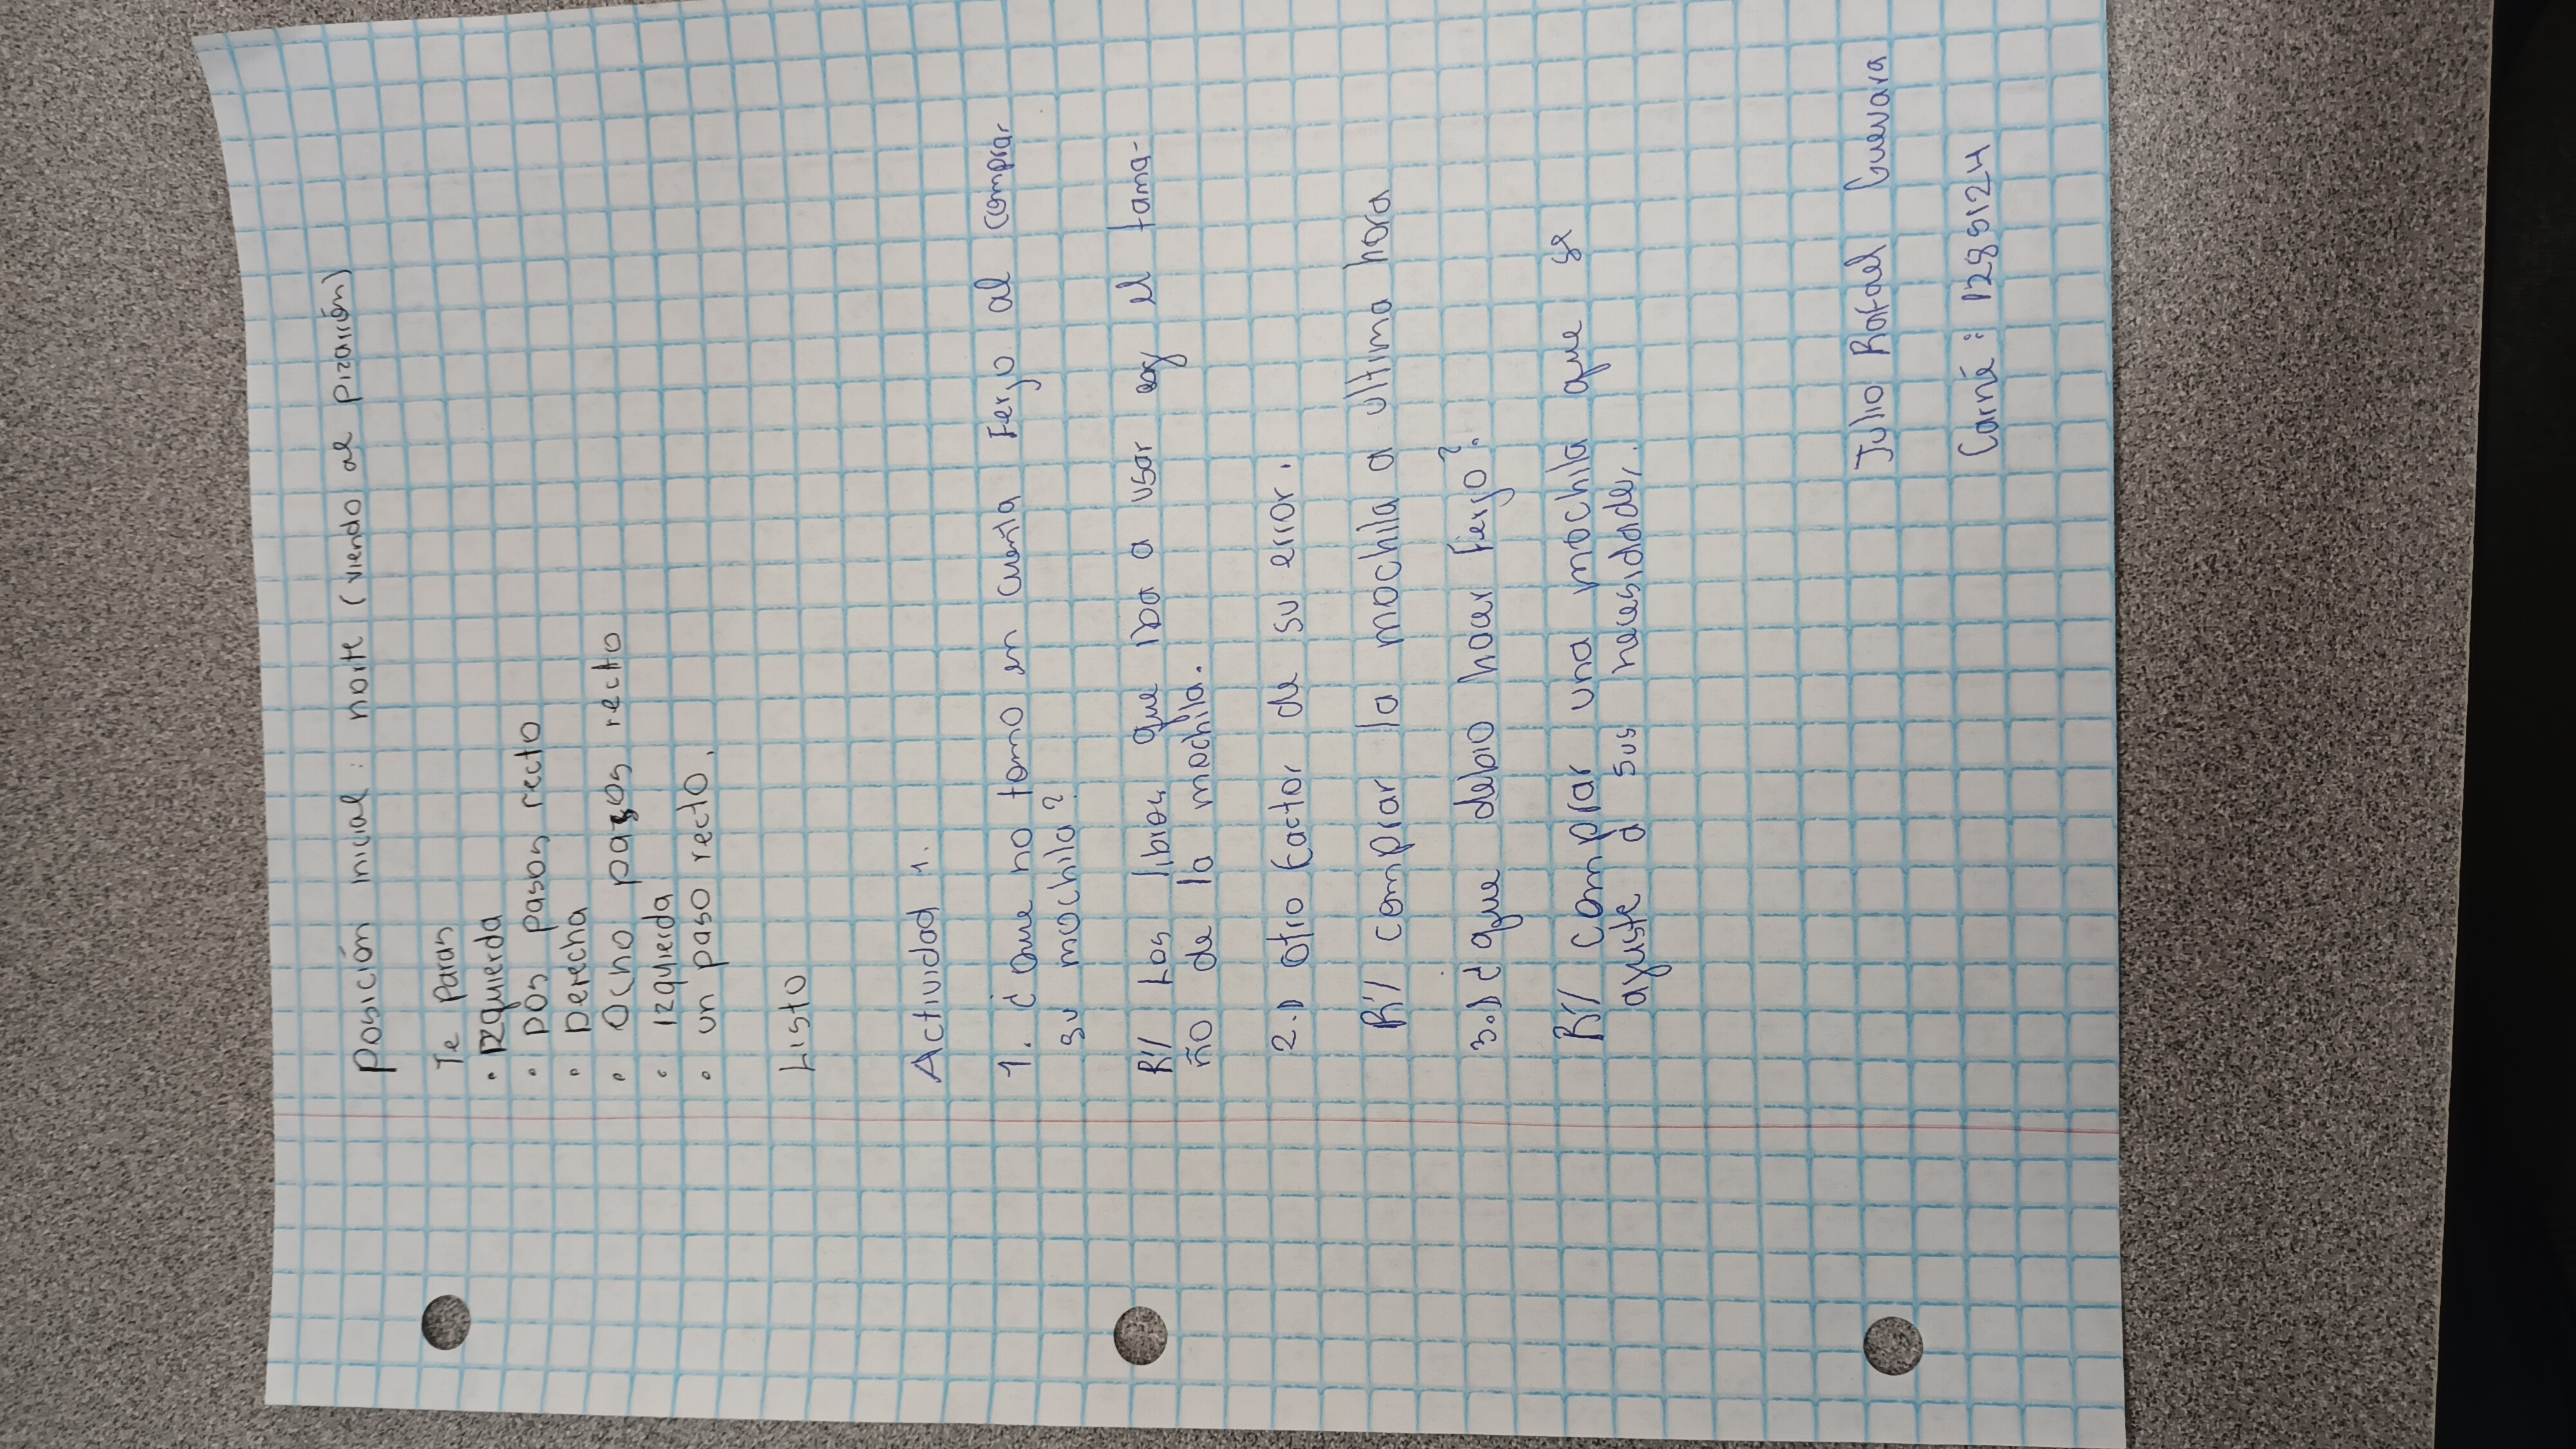 Posición inicial: norte (viendo al pizarrón)
Te paras
• Izquierda
• Dos pasos recto
• Derecha
• Ocho pasos recto
• Izquierda
• un paso recto.
Listo
Actividad 1.
1. ¿Que no tomo en cuenta Ferjo al comprar
su mochila?
R// Los libros que iba a usar y el tama-
ño de la mochila.
2.) otro factor de su error.
R// comprar la mochila a ultima hora
3.) ¿que debio hacer Ferjo?
R// comprar una mochila que se
ajuste a sus necesidades.
Julio Rafael Guevara
Carné: 1285124